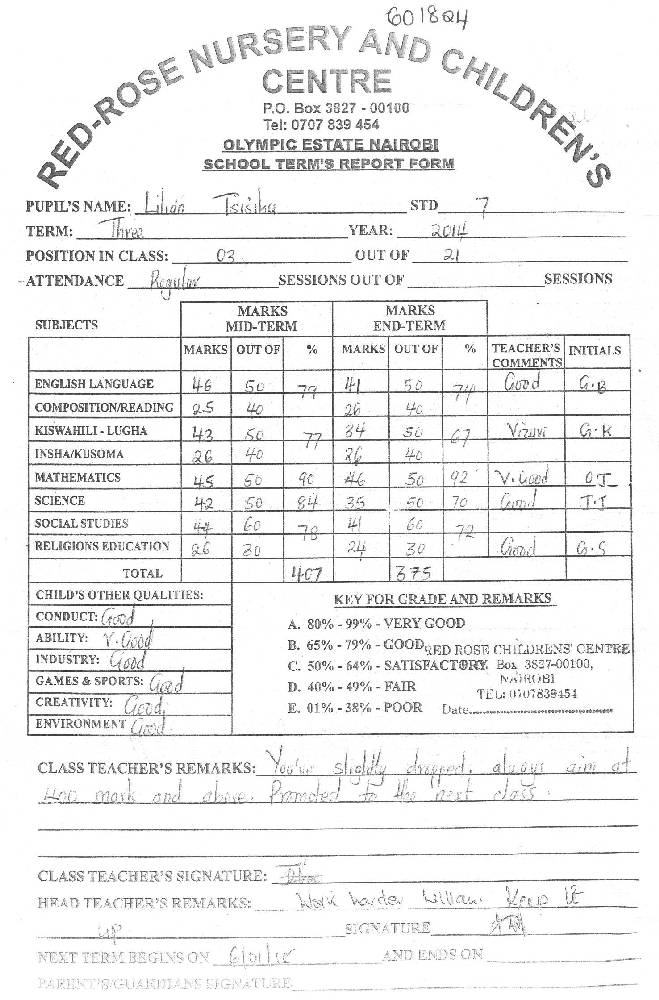 601824
RED-ROSE NURSERY AND CHILDREN'S
CENTRE
P.O. Box 3827 - 00100
Tel: 0707 839 454
OLYMPIC ESTATE NAIROBI
SCHOOL TERM'S REPORT FORM
PUPIL'S NAME: Lilian Tsisika STD 7
TERM: Three YEAR: 2014
POSITION IN CLASS: 03 OUT OF 21
ATTENDANCE Regular SESSIONS OUT OF SESSIONS
SUBJECTS MARKS MID-TERM MARKS END-TERM
MARKS OUT OF % MARKS OUT OF % TEACHER'S COMMENTS INITIALS
ENGLISH LANGUAGE 46 50 79 41 50 74 Good G.B
COMPOSITION/READING 25 40 26 40
KISWAHILI - LUGHA 43 50 77 34 50 67 Vizuri G.K
INSHA/KUSOMA 26 40 26 40
MATHEMATICS 45 50 90 46 50 92 V.Good OJ
SCIENCE 42 50 84 35 50 70 Good T.T
SOCIAL STUDIES 44 60 78 41 60 72
RELIGIONS EDUCATION 26 30 24 30 Good G.S
TOTAL 407 375
CHILD'S OTHER QUALITIES:
CONDUCT: Good
ABILITY: V.Good
INDUSTRY: Good
GAMES & SPORTS: Good
CREATIVITY: Good
ENVIRONMENT Good
KEY FOR GRADE AND REMARKS
A. 80% - 99% - VERY GOOD
B. 65% - 79% - GOOD
C. 50% - 64% - SATISFACTORY
D. 40% - 49% - FAIR
E. 01% - 38% - POOR
RED ROSE CHILDRENS' CENTRE
Box 3827-00100,
NAIROBI
TEL: 0707839454
Date
CLASS TEACHER'S REMARKS: You've slightly dropped, always aim at
400 mark and above. Promoted to the next class.
CLASS TEACHER'S SIGNATURE:
HEAD TEACHER'S REMARKS: Work harder Lillian. Keep it
up SIGNATURE
NEXT TERM BEGINS ON 6/01/15 AND ENDS ON
PARENT'S/GUARDIANS SIGNATURE